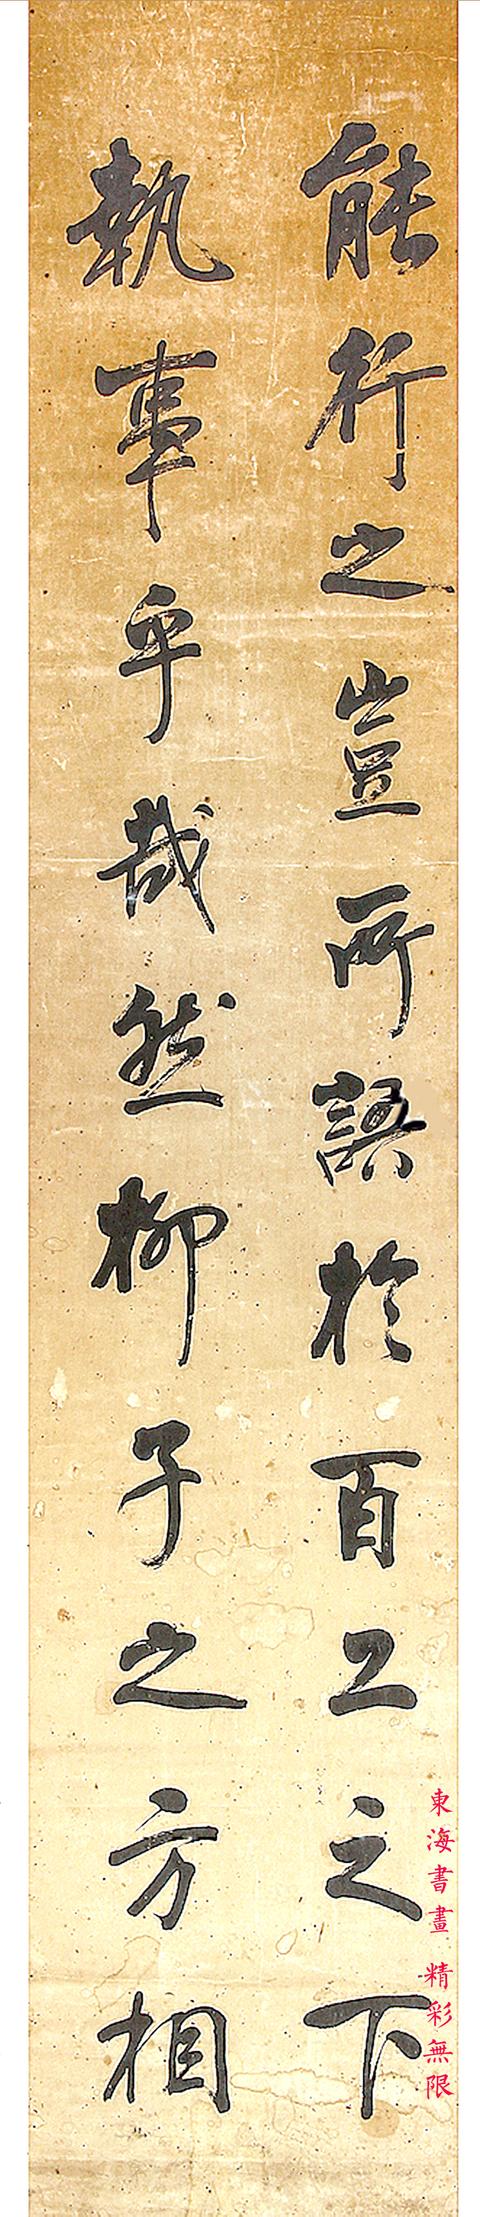 能行之豈所語於百工之下
執事乎哉然柳子之方相
東海書畫 精彩無限